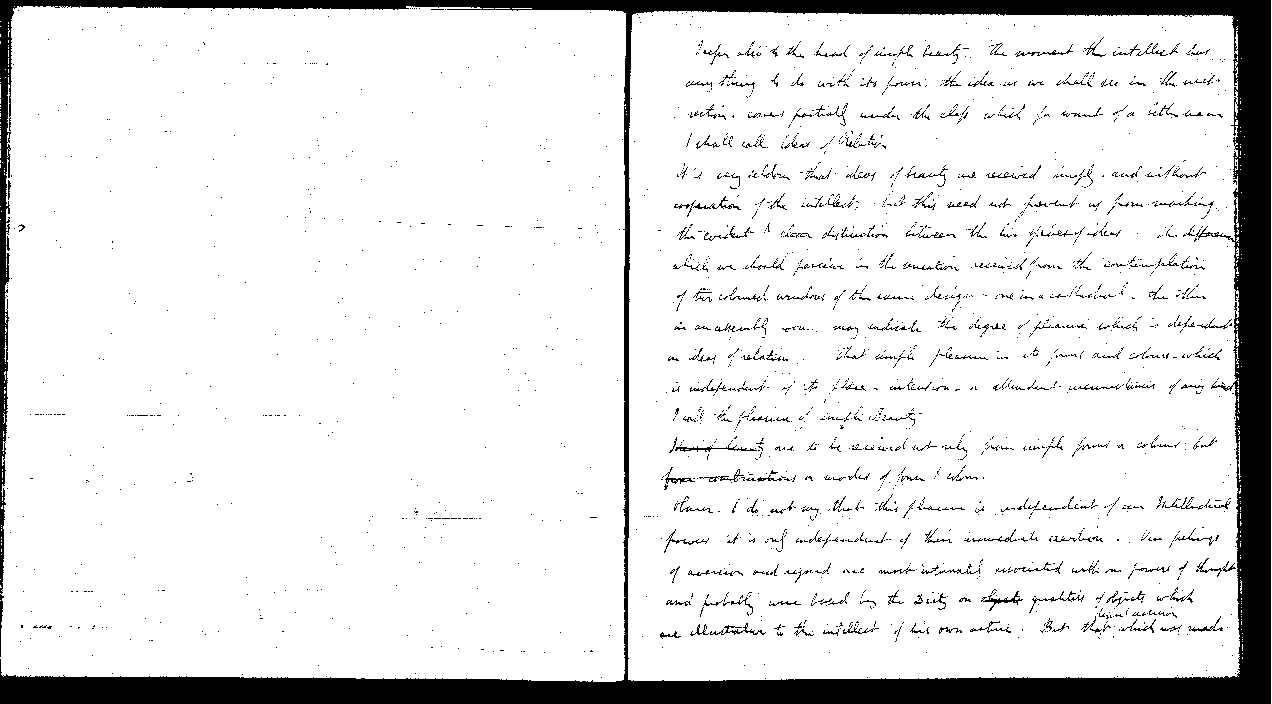 I refer also to the head of simple beauty. The moment the intellect has
any thing to do with its power. the idea as we shall see in the next
section. comes partially under the class which for want of a better name
I shall call ideas of Relation
it is very seldom that ideas of beauty are received simply. and without
cooperation of the intellect: but this need not prevent us from marking
the evident & clear distinction between the two species of ideas. The difference
which we should perceive in the sensation received from the contemplation
of two coloured windows of the same design - one in a cathedral. the other
in an assembly room. may indicate the degree of pleasure which is dependent
on ideas of relation. That simple pleasure in its forms and colours - which
is independent of its place - intention - or attendant circumstances of any kind
I call the pleasure of simple Beauty
Ideas of beauty are to be received not only from simple forms or colours but
from combinations or modes of form & colour.
I do not say that this pleasure is independent of our Intellectual
powers it is only independent of their immediate exertion. Our feelings
of aversion and regard are most intimately associated with our powers of thought
and probably were based by the Deity on objects qualities of objects which
are illustrative to the intellect of his own nature. But that which was made